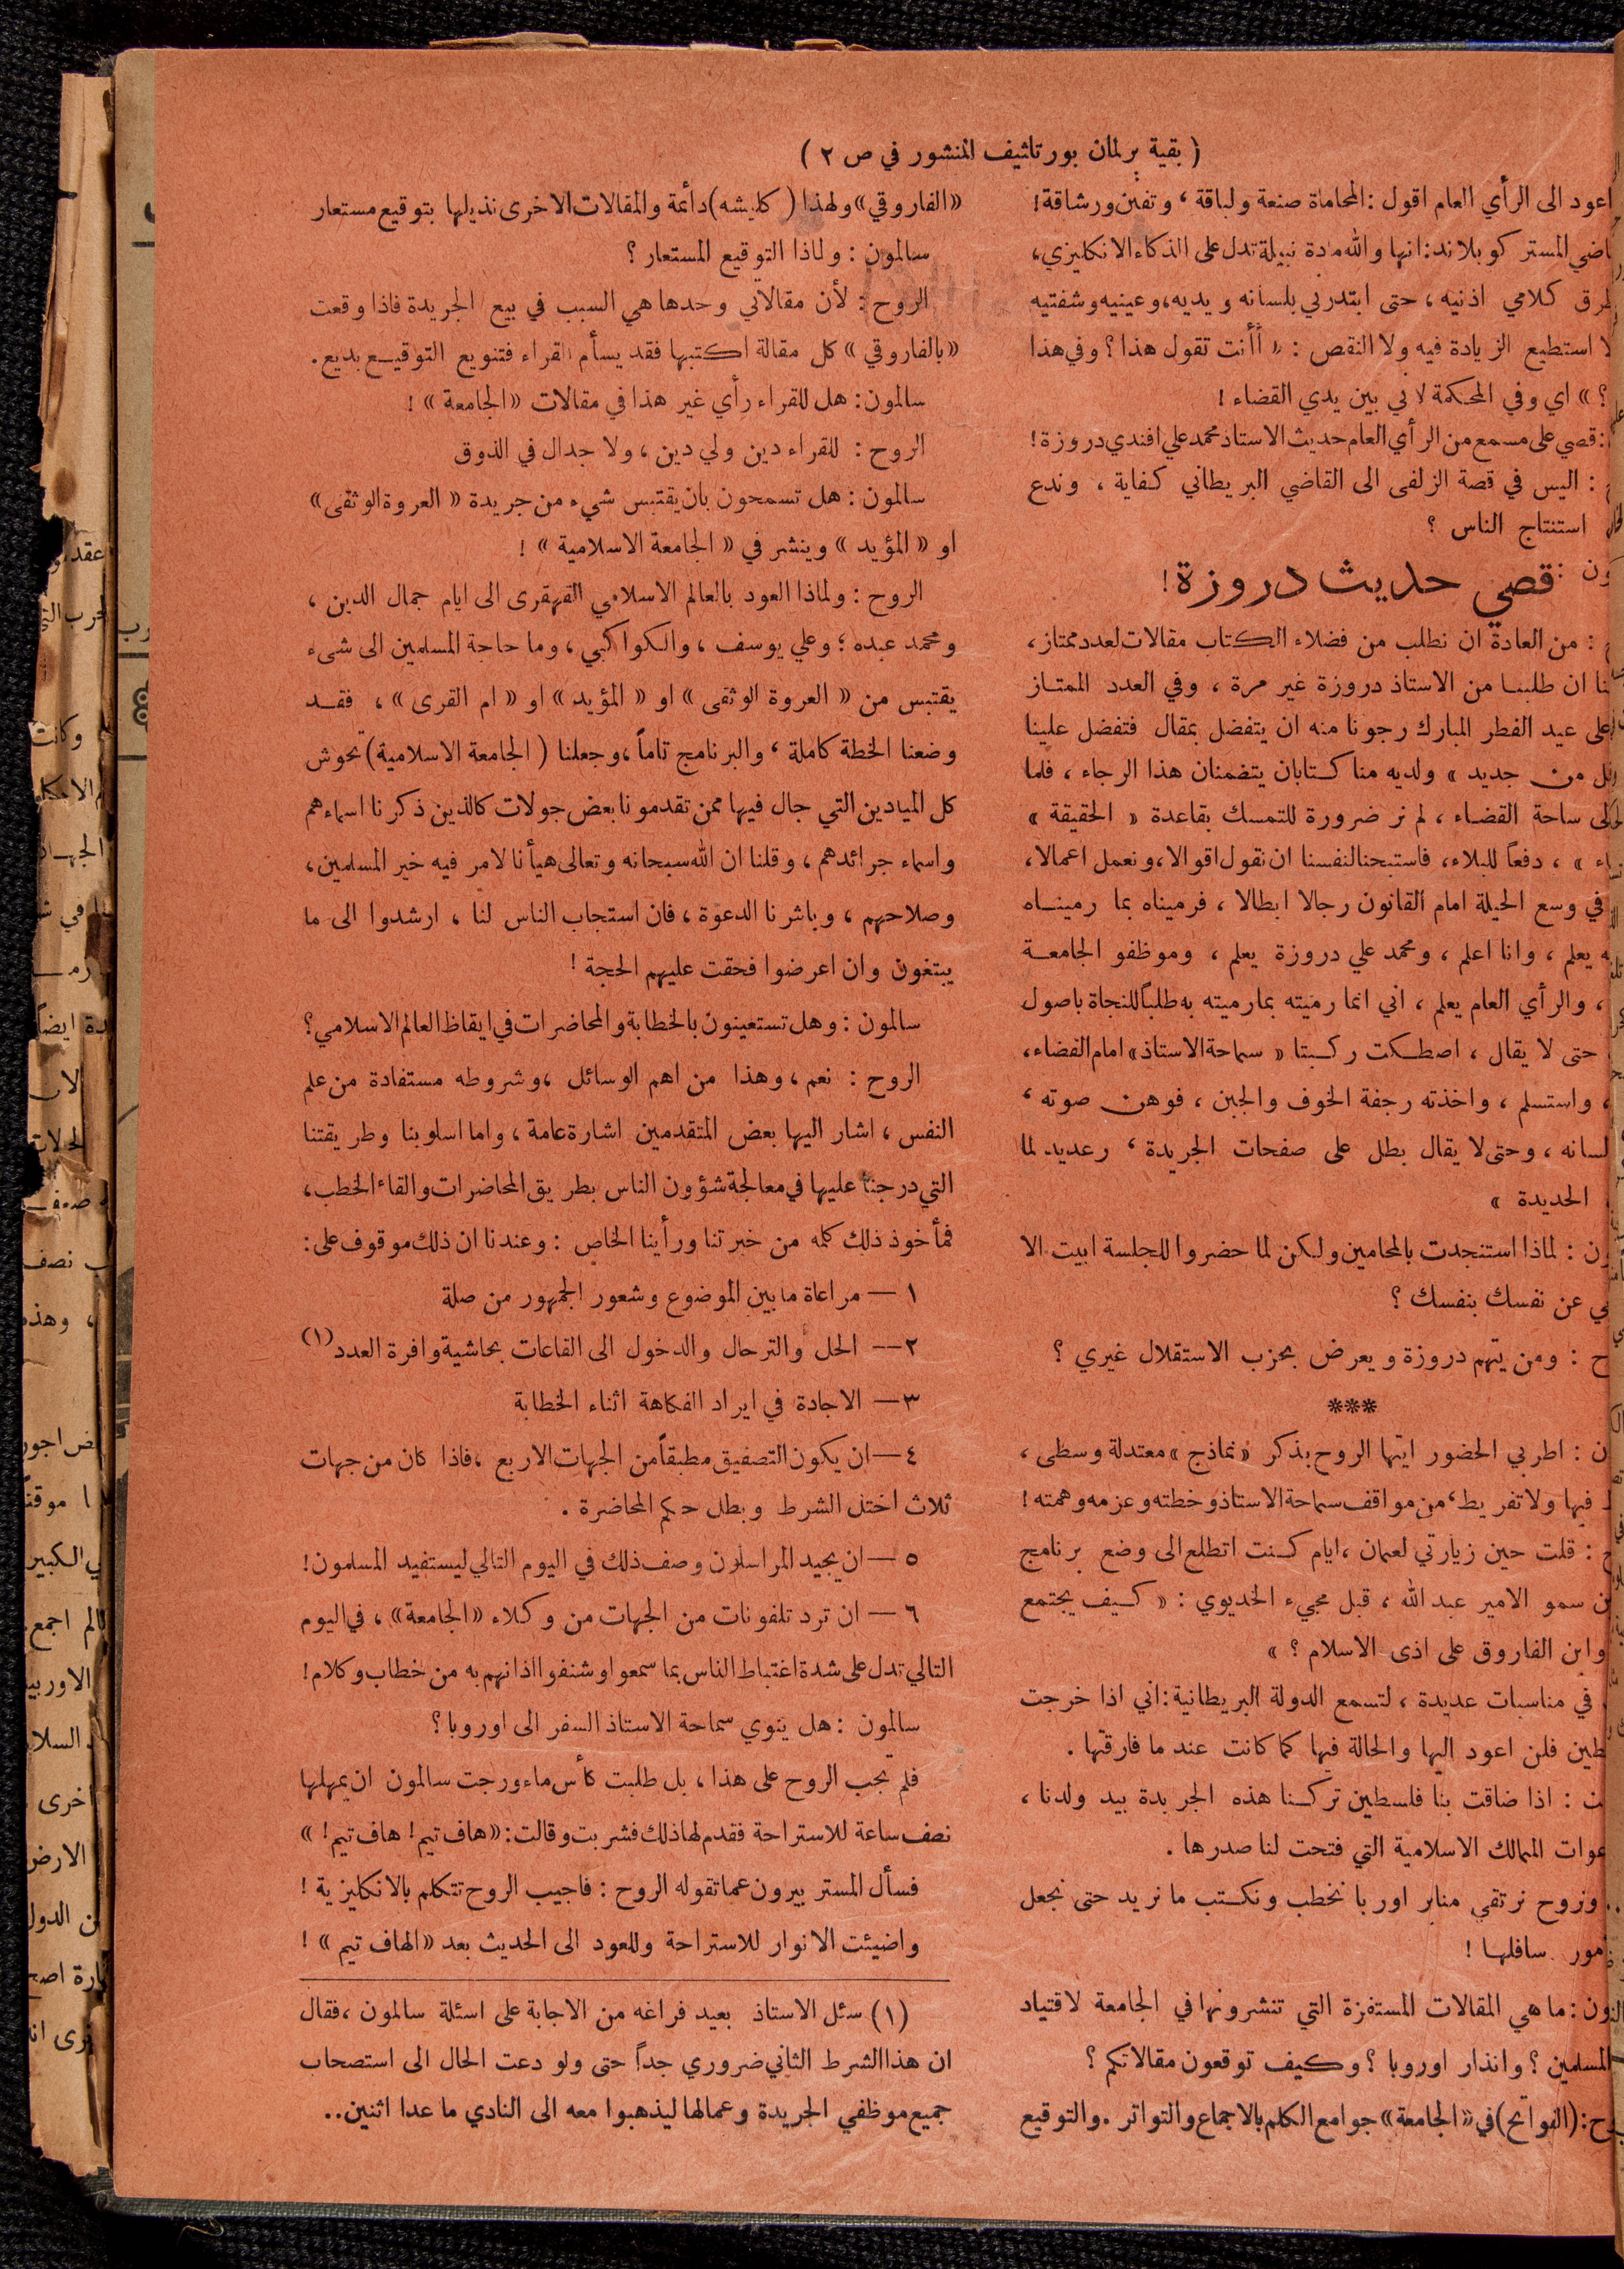 ( بقية برلمان بورتاثيف المنشور في ص ٢ )
اعود الى الرأي العام اقول : المحاماة صنعة ولباقة ، وتفنن ورشاقة !
المستر كوبلاند : انها والله مادة نبيلة تدل على الذكاء الانكليزي ،
كلامي اذنيه ، حتى ابتدرني بلسانه ويديه ، وعينيه وشفتيه
استطيع الزيادة فيه ولا النقص : « أأنت تقول هذا ؟ وفي هذا
؟ » اي وفي المحكمة لاني بين يدي القضاء !
: قصي على مسمع من الرأي العام حديث الاستاذ محمد علي افندي دروزة !
: اليس في قصة الزلفى الى القاضي البريطاني كفاية ، وندع
استنتاج الناس ؟
ون : قصي حديث دروزة !
: من العادة ان نطلب من فضلاء الكتاب مقالات لعدد ممتاز ،
ان طلبنا من الاستاذ دروزة غير مرة ، وفي العدد الممتاز
على عيد الفطر المبارك رجونا منه ان يتفضل بمقال فتفضل علينا
من جديد » ولديه منا كتابان يتضمنان هذا الرجاء ، فلما
الى ساحة القضاء ، لم نر ضرورة للتمسك بقاعدة « الحقيقة »
» ، دفعاً للبلاء ، فاستبحنا لنفسنا ان نقول اقوالا ، ونعمل اعمالا ،
في وسع الحيلة امام القانون رجالا ابطالا ، فرميناه بما رميناه
يعلم ، وانا اعلم ، ومحمد علي دروزة يعلم ، وموظفو الجامعة
، والرأي العام يعلم ، اني انما رميته بما رميته به طلباً للنجاة باصول
حتى لا يقال ، اصطكت ركبتا « سماحة الاستاذ » امام القضاء ،
، واستسلم ، واخذته رجفة الخوف والجبن ، فوهن صوته ،
لسانه ، وحتى لا يقال بطل على صفحات الجريدة ، رعديد لما
الحديدة »
ون : لماذا استنجدت بالمحامين ولكن لما حضروا للجلسة ابيت الا
عن نفسك بنفسك ؟
ح : ومن يتهم دروزة ويعرض بحزب الاستقلال غيري ؟
***
ن : اطربي الحضور ايتها الروح بذكر « نماذج » معتدلة وسطى ،
فيها ولا تفريط ، من مواقف سماحة الاستاذ وخطته وعزمه وهمته !
ح : قلت حين زيارتي لعمان ، ايام كنت اتطلع الى وضع برنامج
سمو الامير عبد الله ، قبل مجيء الخديوي : « كيف يجتمع
وابن الفاروق على اذى الاسلام ؟ »
في مناسبات عديدة ، لتسمع الدولة البريطانية : اني اذا خرجت
طين فلن اعود اليها والحالة فيها كما كانت عند ما فارقتها .
ت : اذا ضاقت بنا فلسطين تركنا هذه الجريدة بيد ولدنا ،
عوات الممالك الاسلامية التي فتحت لنا صدرها .
.. ونروح نرتقي منابر اوربا نخطب ونكتب ما نريد حتى نجعل
سافلها !
ون : ما هي المقالات المستفزة التي تنشرونها في الجامعة لاقتياد
المسلمين ؟ وانذار اوروبا ؟ وكيف توقعون مقالاتكم ؟
ح : ( الفواتح ) في « الجامعة » جوامع الكلم بالاجماع والتواتر . والتوقيع
« الفاروقي » ولهذا ( كليشه ) دائمة والمقالات الاخرى نذيلها بتوقيع مستعار
سالمون : ولماذا التوقيع المستعار ؟
الروح : لأن مقالاتي وحدها هي السبب في بيع الجريدة فاذا وقعت
« بالفاروقي » كل مقالة اكتبها فقد يسأم القراء فتنويع التوقيع بديع .
سالمون : هل للقراء رأي غير هذا في مقالات « الجامعة » !
الروح : للقراء دين ولي دين ، ولا جدال في الذوق
سالمون : هل تسمحون بان يقتبس شيء من جريدة « العروة الوثقى »
او « المؤيد » وينشر في « الجامعة الاسلامية » !
الروح : ولماذا العود بالعالم الاسلامي القهقرى الى ايام جمال الدين ،
ومحمد عبده ؛ وعلي يوسف ، والكواكبي ، وما حاجة المسلمين الى شيء
يقتبس من « العروة الوثقى » او « المؤيد » او « ام القرى » ، فقد
وضعنا الخطة كاملة ، والبرنامج تاماً ، وجعلنا ( الجامعة الاسلامية ) تحوش
كل الميادين التي جال فيها ممن تقدمونا بعض جولات كالذين ذكرنا اسماءهم
واسماء جرائدهم ، وقلنا ان الله سبحانه وتعالى هيأنا لامر فيه خير المسلمين ،
وصلاحهم ، وباشرنا الدعوة ، فان استجاب الناس لنا ، ارشدوا الى ما
يبتغون وان اعرضوا فحقت عليهم الحجة !
سالمون : وهل تستعينون بالخطابة والمحاضرات في ايقاظ العالم الاسلامي ؟
الروح : نعم ، وهذا من اهم الوسائل ، وشروطه مستفادة من علم
النفس ، اشار اليها بعض المتقدمين اشارة عامة ، واما اسلوبنا وطريقتنا
التي درجنا عليها في معالجة شؤون الناس بطريق المحاضرات والقاء الخطب ،
فمأخوذ ذلك كله من خبرتنا ورأينا الخاص : وعندنا ان ذلك موقوف على :
١ — مراعاة ما بين الموضوع وشعور الجمهور من صلة
٢ — الحل والترحال والدخول الى القاعات بحاشية وافرة العدد (١)
٣ — الاجادة في ايراد الفكاهة اثناء الخطابة
٤ — ان يكون التصفيق مطبقاً من الجهات الاربع ، فاذا كان من جهات
ثلاث اختل الشرط وبطل حكم المحاضرة .
٥ — ان يجيد المراسلون وصف ذلك في اليوم التالي ليستفيد المسلمون !
٦ — ان ترد تلفونات من الجهات من وكلاء « الجامعة » ، في اليوم
التالي تدل على شدة اغتباط الناس بما سمعوا وشنفوا اذانهم به من خطاب وكلام !
سالمون : هل ينوي سماحة الاستاذ السفر الى اوروبا ؟
فلم تجب الروح على هذا ، بل طلبت كأس ماء ورجت سالمون ان يمهلها
نصف ساعة للاستراحة فقدم لها ذلك فشربت وقالت : « هاف تيم ! هاف تيم ! »
فسأل المستر بيرون عما تقوله الروح : فاجيب الروح تتكلم بالانكليزية !
واضيئت الانوار للاستراحة وللعود الى الحديث بعد « الهاف تيم » !
(١) سئل الاستاذ بعيد فراغه من الاجابة على اسئلة سالمون ، فقال
ان هذا الشرط الثاني ضروري جداً حتى ولو دعت الحال الى استصحاب
جميع موظفي الجريدة وعمالها ليذهبوا معه الى النادي ما عدا اثنين ..
وكانت
نصف
، وهذه
الكبير
اجمع
اخرى
الارض
الدول